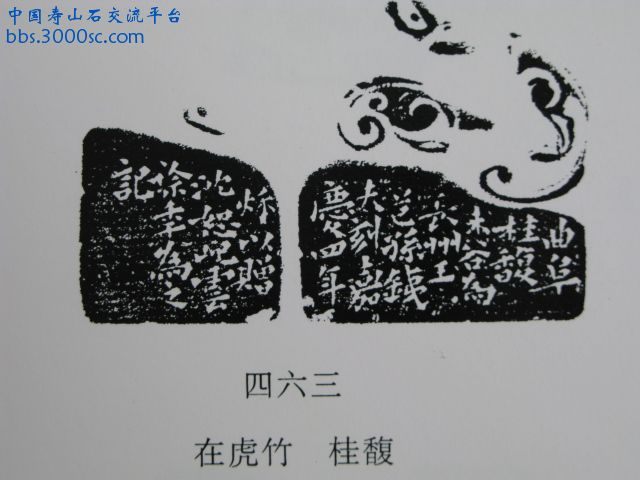 中国寿山石交流平台
bbs.3000sc.com
曲阜
桂馥
未谷為
長州王
芑孫鐵
夫刻嘉
慶四年
秌以贈
沈恕屺雲
徐為之
記
四六三
在虎竹　桂馥